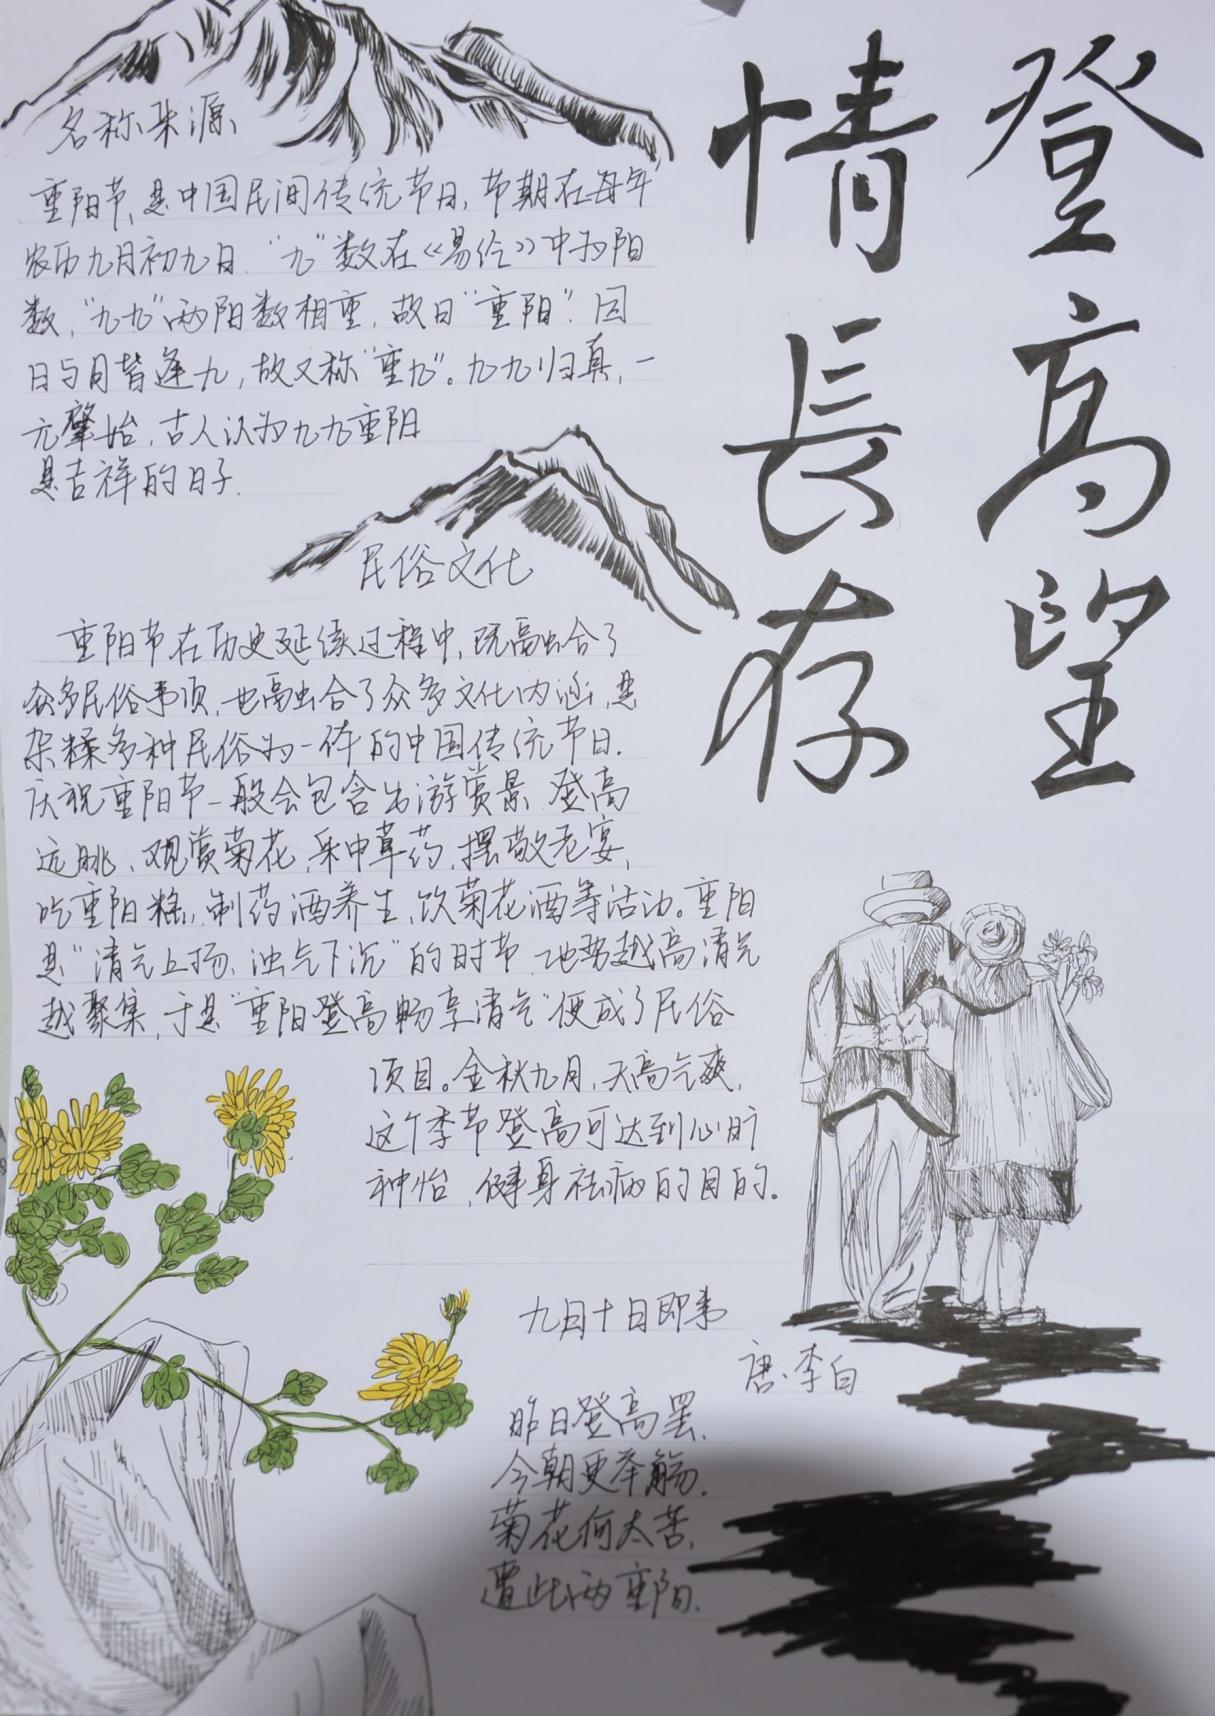 登高望
情長存
名称来源
重阳节,是中国民间传统节日,节期在每年
农历九月初九日."九"数在《易经》中为阳
数,"九九"两阳数相重,故曰"重阳".因
日与月皆逢九,故又称"重九"。九九归真,一
元肇始,古人认为九九重阳
是吉祥的日子.
民俗文化
重阳节在历史延续过程中,既融合了
众多民俗事项,也融合了众多文化内涵,是
杂糅多种民俗为一体的中国传统节日.
庆祝重阳节一般会包含出游赏景、登高
远眺、观赏菊花,采中草药,摆敬老宴,
吃重阳糕,制药酒养生,饮菊花酒等活动。重阳
是"清气上扬、浊气下沉"的时节,地势越高清气
越聚集,于是"重阳登高畅享清气"便成了民俗
项目。金秋九月,天高气爽,
这个季节登高可达到心旷
神怡,健身祛病的目的。
九月十日即事
唐·李白
昨日登高罢,
今朝更举觞.
菊花何太苦,
遭此两重阳.